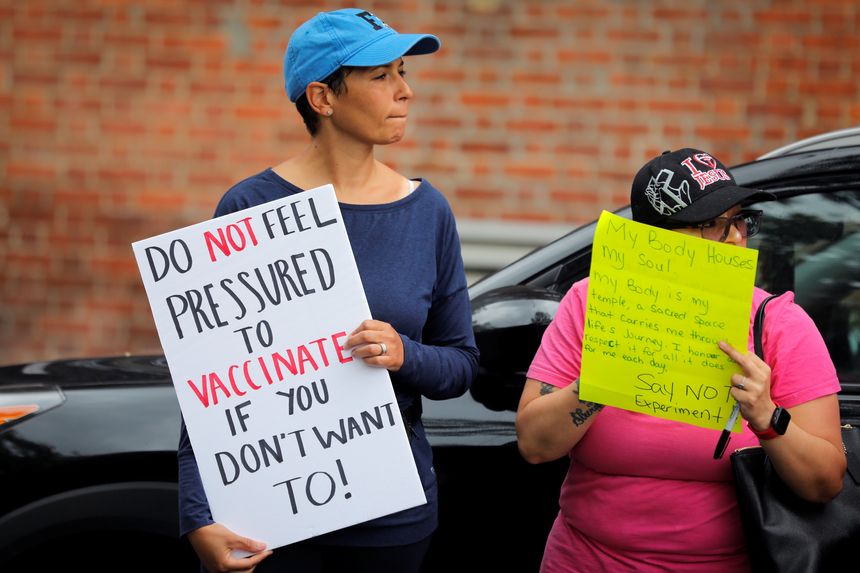 DO NOT FEEL
PRESSURED
TO
VACCINATE
IF YOU
DON'T WANT
TO!
I
JESUS
My Body Houses
my Soul.
My Body is my
temple, a sacred space
that carries me throu
life's Journey. I honor
respect it for all it does
for me each day.
Say NO
Experiment